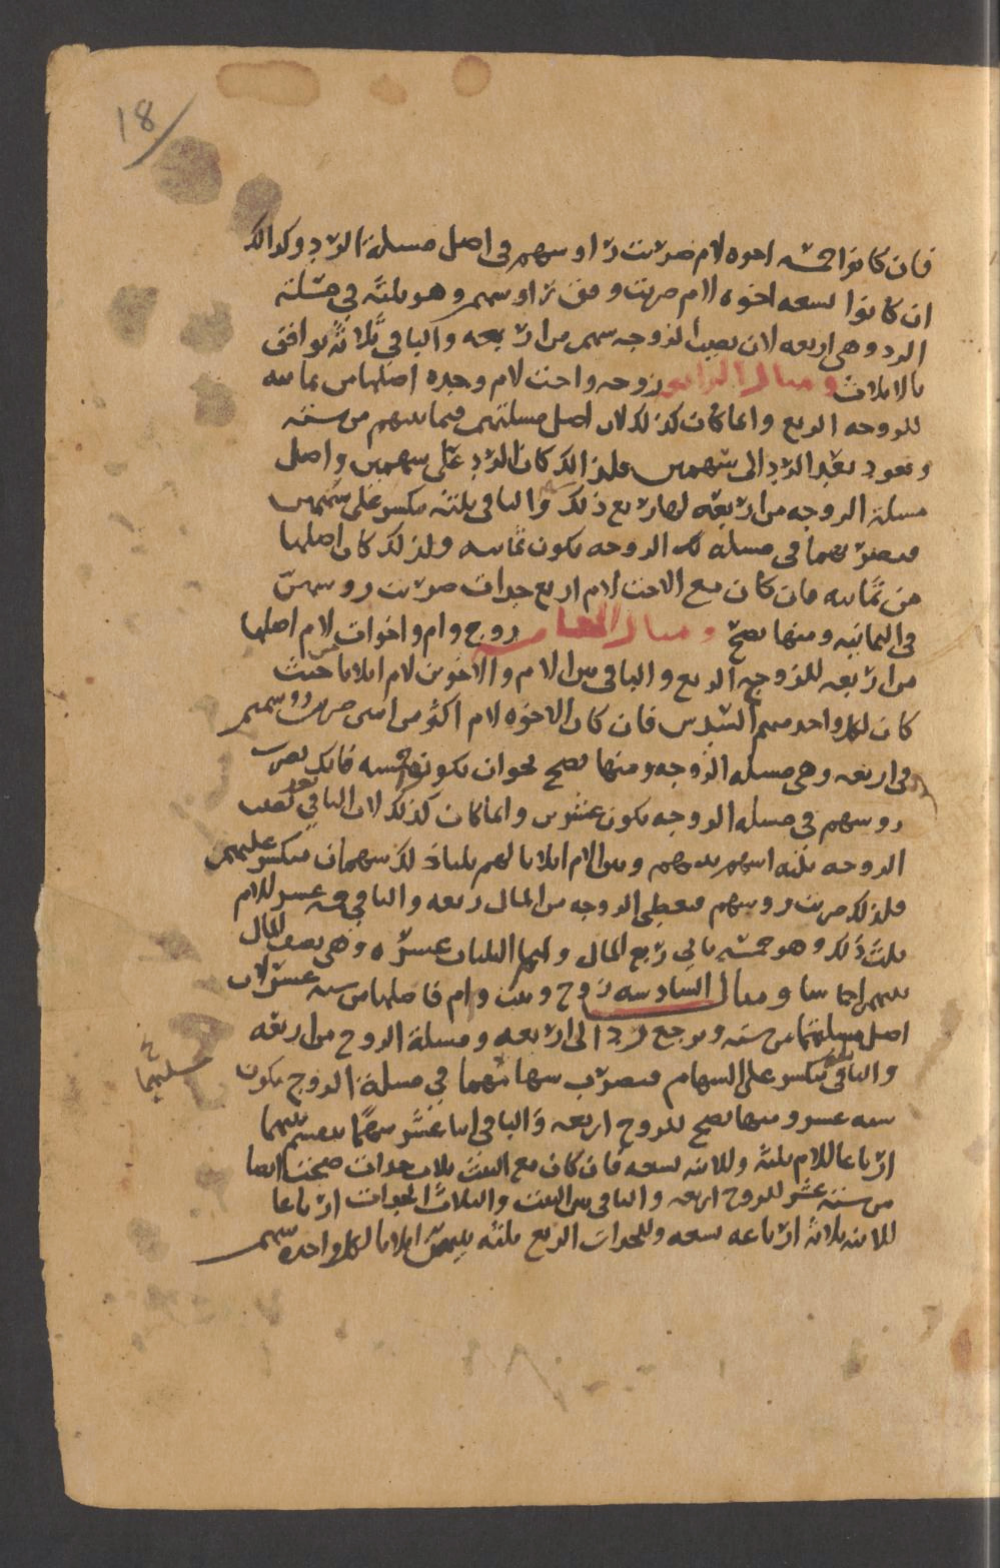 18
فان كانوا خمسه اخوه لام ضربت رؤوسهم في اصل مسلة الرد وكذالك
ان كانوا تسعه اخوه لام ضربت وفق رؤوسهم وهو ثلثه في مسلة
الرد وهي اربعه لان نصيب الزوجه سهم من اربعه والباقي ثلاثه توافق
بالاثلاث ومثال الرابعه زوجه واخت لام وجده اصلها من ثمانيه
للزوجه الربع وانما كان كذلك لان اصل مسلتهم فيما بينهم من سته
وتعود بعد الرد الى سهمين فلذالك كان الرد على سهمين واصل
مسلة الزوجه من اربعه لها ربع ذلك والباقي ثلثه منكسر على سهمين
فتضربهما في مسلة الزوجه يكون ثمانيه ولذلك كان اصلها
من ثمانيه فان كان مع الاخت لام اربع جدات ضربت روسهن
في الثمانيه ومنها تصح ومثال الخامسه زوج وام واخوات لام اصلها
من اربعه للزوجه الربع والباقي بين الام والاخوين لام اثلاثا حيث
كان لكل واحد منهم السدس فان كان الاخوه لام اكثر من اثنين ضربت روسهم
في اربعه وهي مسلة الزوجه ومنها تصح نحو ان يكونوا خمسه فانك تضرب
روسهم في مسلة الزوجه يكون عشرين وانما كان كذلك لان الباقي بعد نصيب
الزوجه ثلثه اسهم بينهم وبين الام اثلاثا لهم ثلثا ذلك سهمان منكسر عليهم
فلذلك ضربت روسهم فتعطي الزوجه من المال ربعه والباقي خمسه عشر للام
ثلث ذلك وهو خمسه ياتي ربع المال ولهم الثلثان عشره وهي نصف المال
بينهم اخماسا ومثال السادسه زوج وبنت وام فاصلها من سته عشر لان
اصل مسلتهما من سته وترجع ردا الى اربعه ومسلة الزوج من اربعه
والباقي منكسر على السهام فتضرب سهامهما في مسلة الزوج يكون
سته عشر ومنها تصح للزوج اربعه والباقي اثنا عشر سهما تقسم بينهما
ارباعا للام ثلثه وللابنه تسعه فان كان مع البنت ثلاث جدات صحت ايضا
من سته عشر للزوج اربعه والباقي بين البنت والثلاث الجدات ارباعا
للابنه ثلاثه ارباعه تسعه وللجدات الربع ثلثه بينهن اثلاثا لكل واحده سهم
مسلتهما